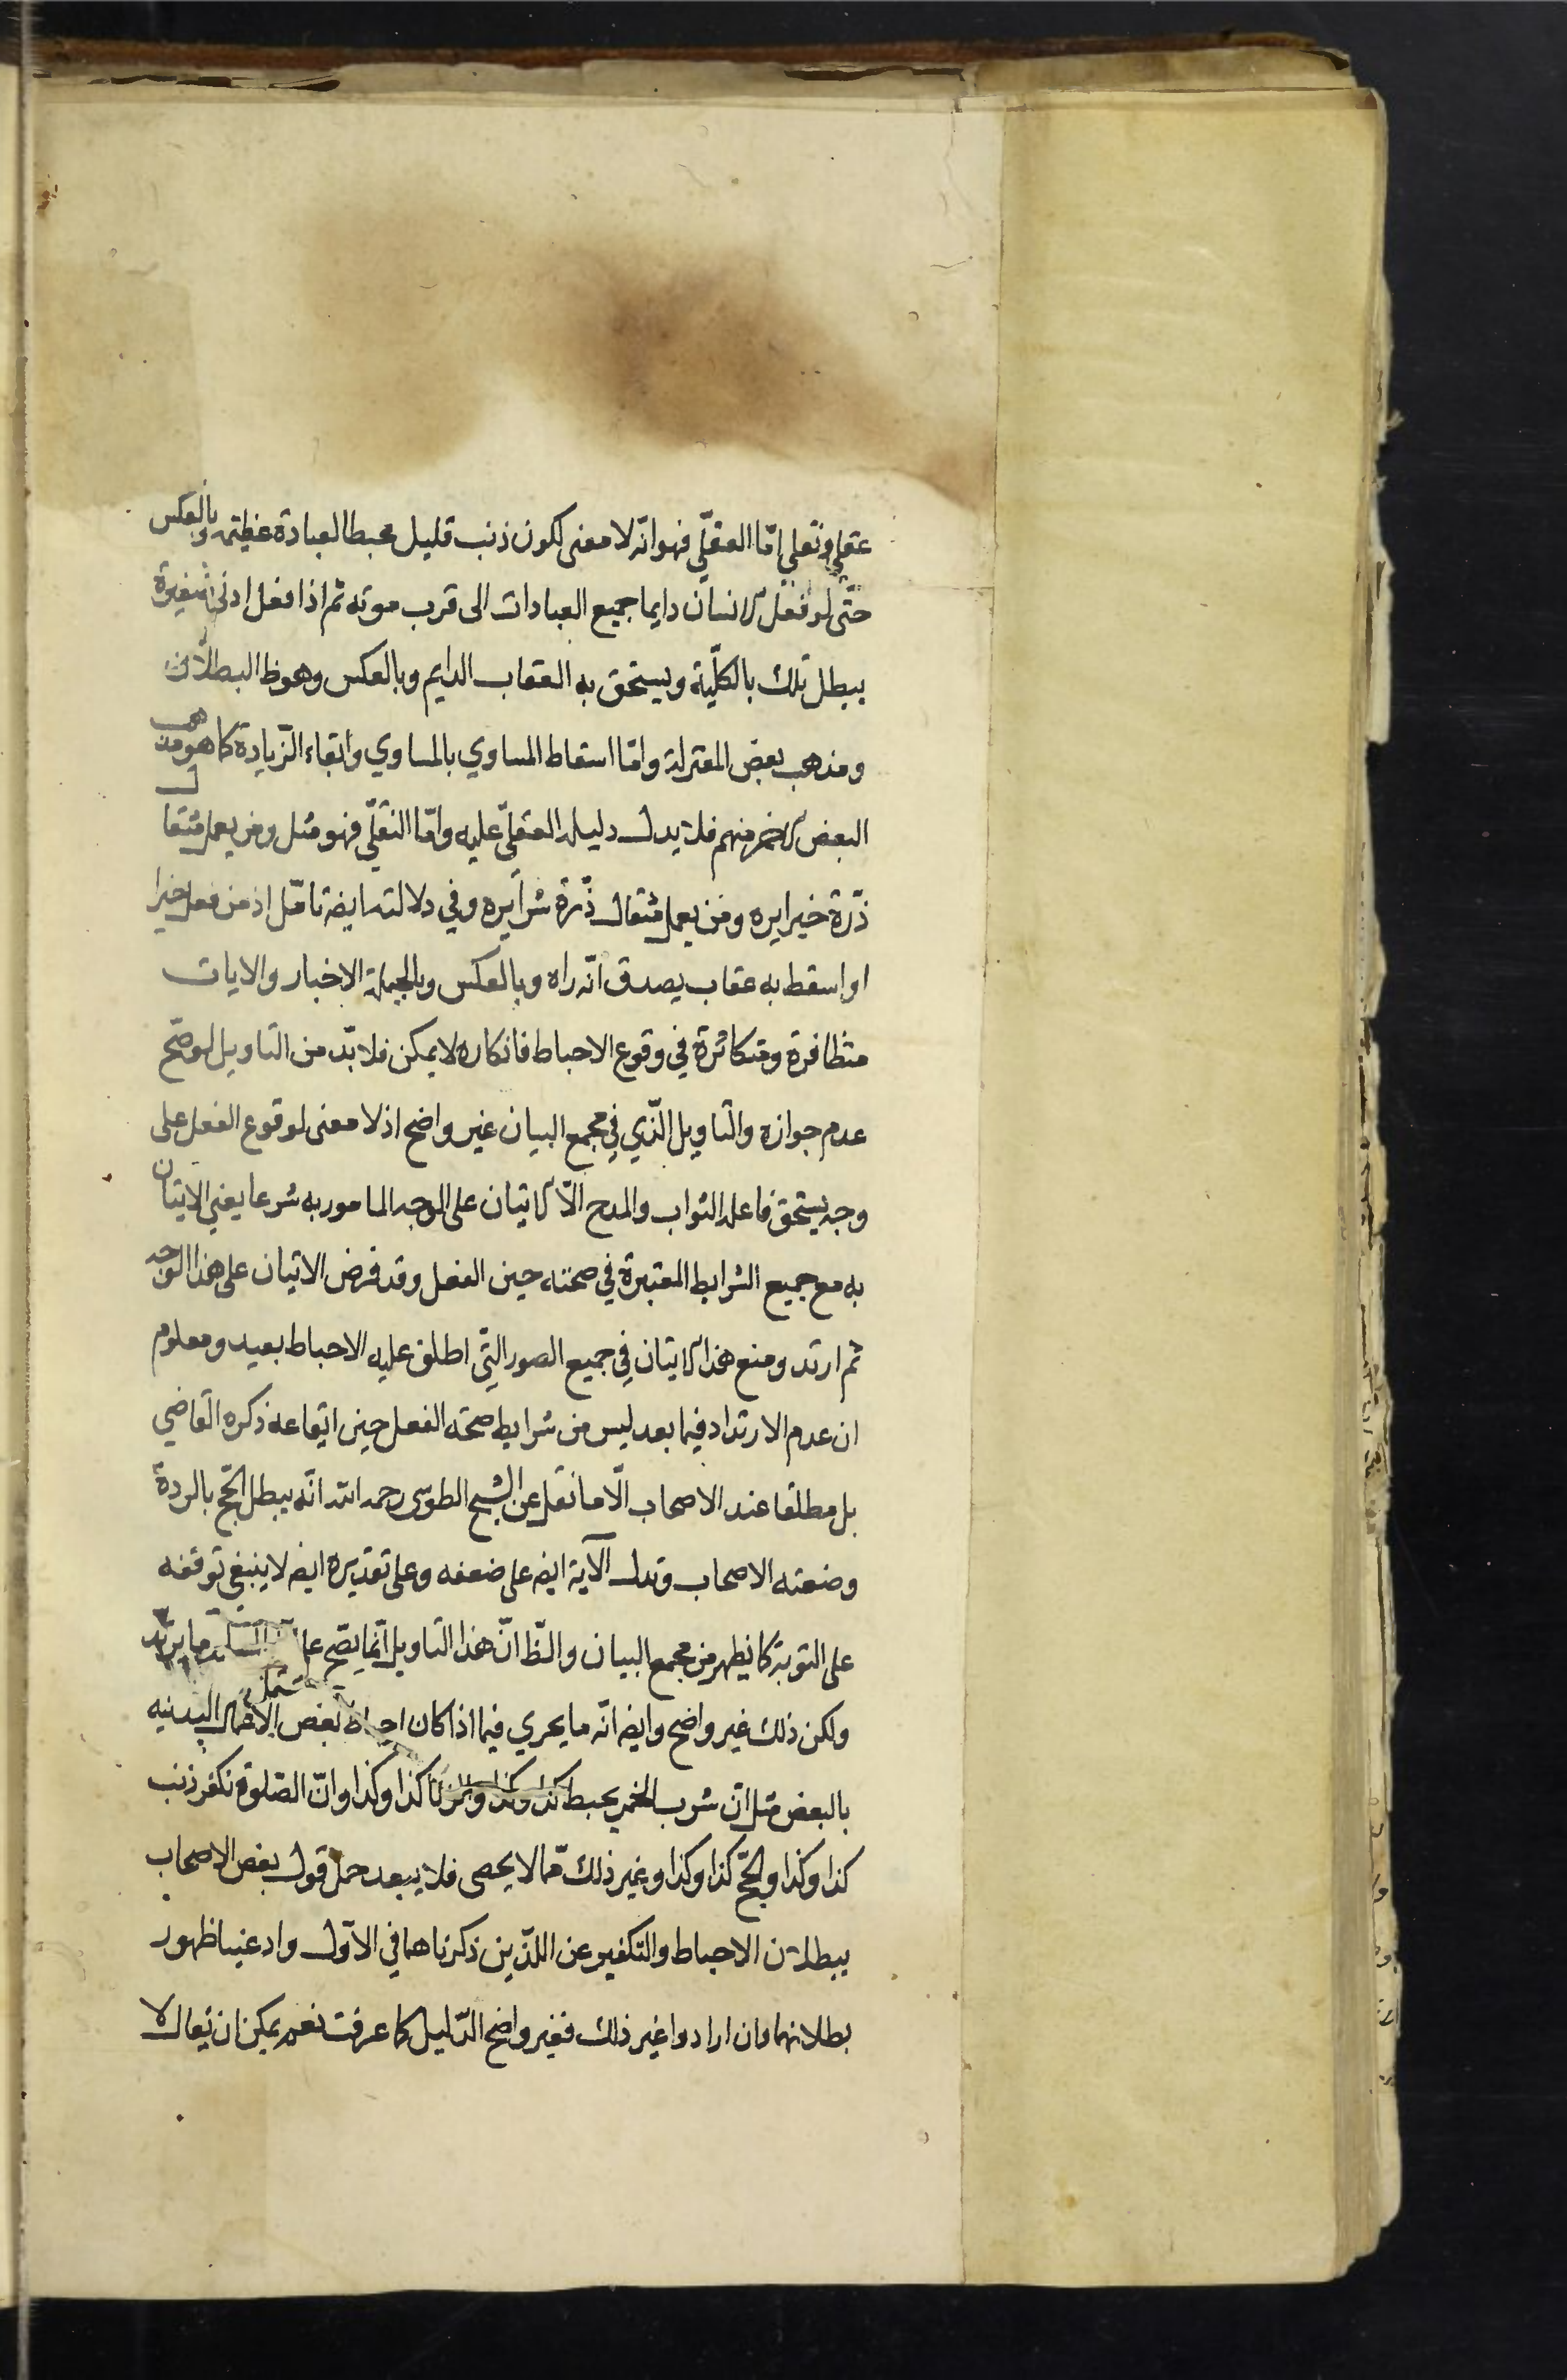 عقلي ونقلي امّا العقلّي فهو انّه لا معنى لكون ذنب قليل محبطا لعبادة عظيمة وبالعكس
حتّى لو فعل الانسان دايما جميع العبادات الى قرب موته ثم اذا فعل ادنى صغيرة
يبطل تلك بالكلّية ويستحق به العقاب الدايم وبالعكس وهو ظ البطلان
ومذهب بعض المعتزلة وامّا اسقاط المساوي بالمساوي وابقاء الزّيادة كما هو مذهب
البعض الاخر منهم فلا يدل دليله العقلّي عليه وامّا النقلّي فهو مثل ومن يعمل مثقال
ذّرة خيرا يره ومن يعمل مثقال ذّرة شرا يره وفي دلالته ايضه تامّل اذ من فعل خيرا
او اسقط به عقاب يصدق انّه راه وبالعكس وبالجملة الاخبار والايات
متظافرة ومتكاثرة في وقوع الاحباط فانكاره لا يمكن فلا بدّ من التاويل لو صّح
عدم جوازه والتاويل الّذي في مجمع البيان غير واضح اذ لا معنى لوقوع الفعل على
وجه يستحق فاعله الثواب والمدح الّا الاتيان على الوجه المامور به شرعا يعني الاتيان
به مع جميع الشرايط المعتبرة في صحته حين الفعل وقد فرض الاتيان على هذا الوجه
ثم ارتد ومنع هذا الاتيان في جميع الصور الّتي اطلق عليه الاحباط بعيد ومعلوم
ان عدم الارتداد فيما بعد ليس من شرايط صحة الفعل حين ايقاعه ذكره القاضي
بل مطلقا عند الاصحاب الّا ما نقل عن الشيخ الطوسي رحمه الله انّه يبطل الحّج بالردة
وضعفه الاصحاب وتدل الآية ايضه على ضعفه وعلى تقديره ايضه لا ينبغي توقفه
على التوبة كما يظهر من مجمع البيان والظّ انّ هذا التاويل انّما يصّح ما يرتد
ولكن ذلك غير واضح وايضه انّه ما يجري فيما اذا كان احباط بعض الاعمال البدنيه
بالبعض مثل انّ شرب الخمر يحبط كذا وكذا والزنا كذا وكذا وانّ الصّلوة تكفر ذنب
كذا وكذا والحّج كذا وكذا وغير ذلك مّما لا يحصى فلا يبعد حمل قول بعض الاصحاب
ببطلان الاحباط والتكفير عن اللّذين ذكرناهما في الاوّل وادعينا ظهور
بطلانهما وان ارادوا غير ذلك فغير واضح الدّليل كما عرفت نعم يمكن ان يقال لا